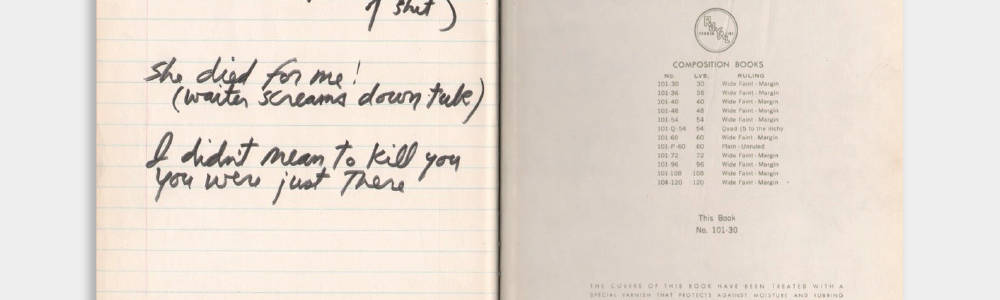 of shit)
She died for me!
(waiter screams down tube)
I didn't mean to kill you
You were just There
COMPOSITION BOOKS
No. LVS. RULING
101-30 30 Wide Faint - Margin
101-36 36 Wide Faint - Margin
101-40 40 Wide Faint - Margin
101-48 48 Wide Faint - Margin
101-54 54 Wide Faint - Margin
101-Q-54 54 Quad (5 to the inch)
101-60 60 Wide Faint - Margin
101-P-60 60 Plain - Unruled
101-72 72 Wide Faint - Margin
101-96 96 Wide Faint - Margin
101-108 108 Wide Faint - Margin
104-120 120 Wide Faint - Margin
This Book
No. 101-30
THE COVERS OF THIS BOOK HAVE BEEN TREATED WITH A
SPECIAL VARNISH THAT PROTECTS AGAINST MOISTURE AND RUBBING